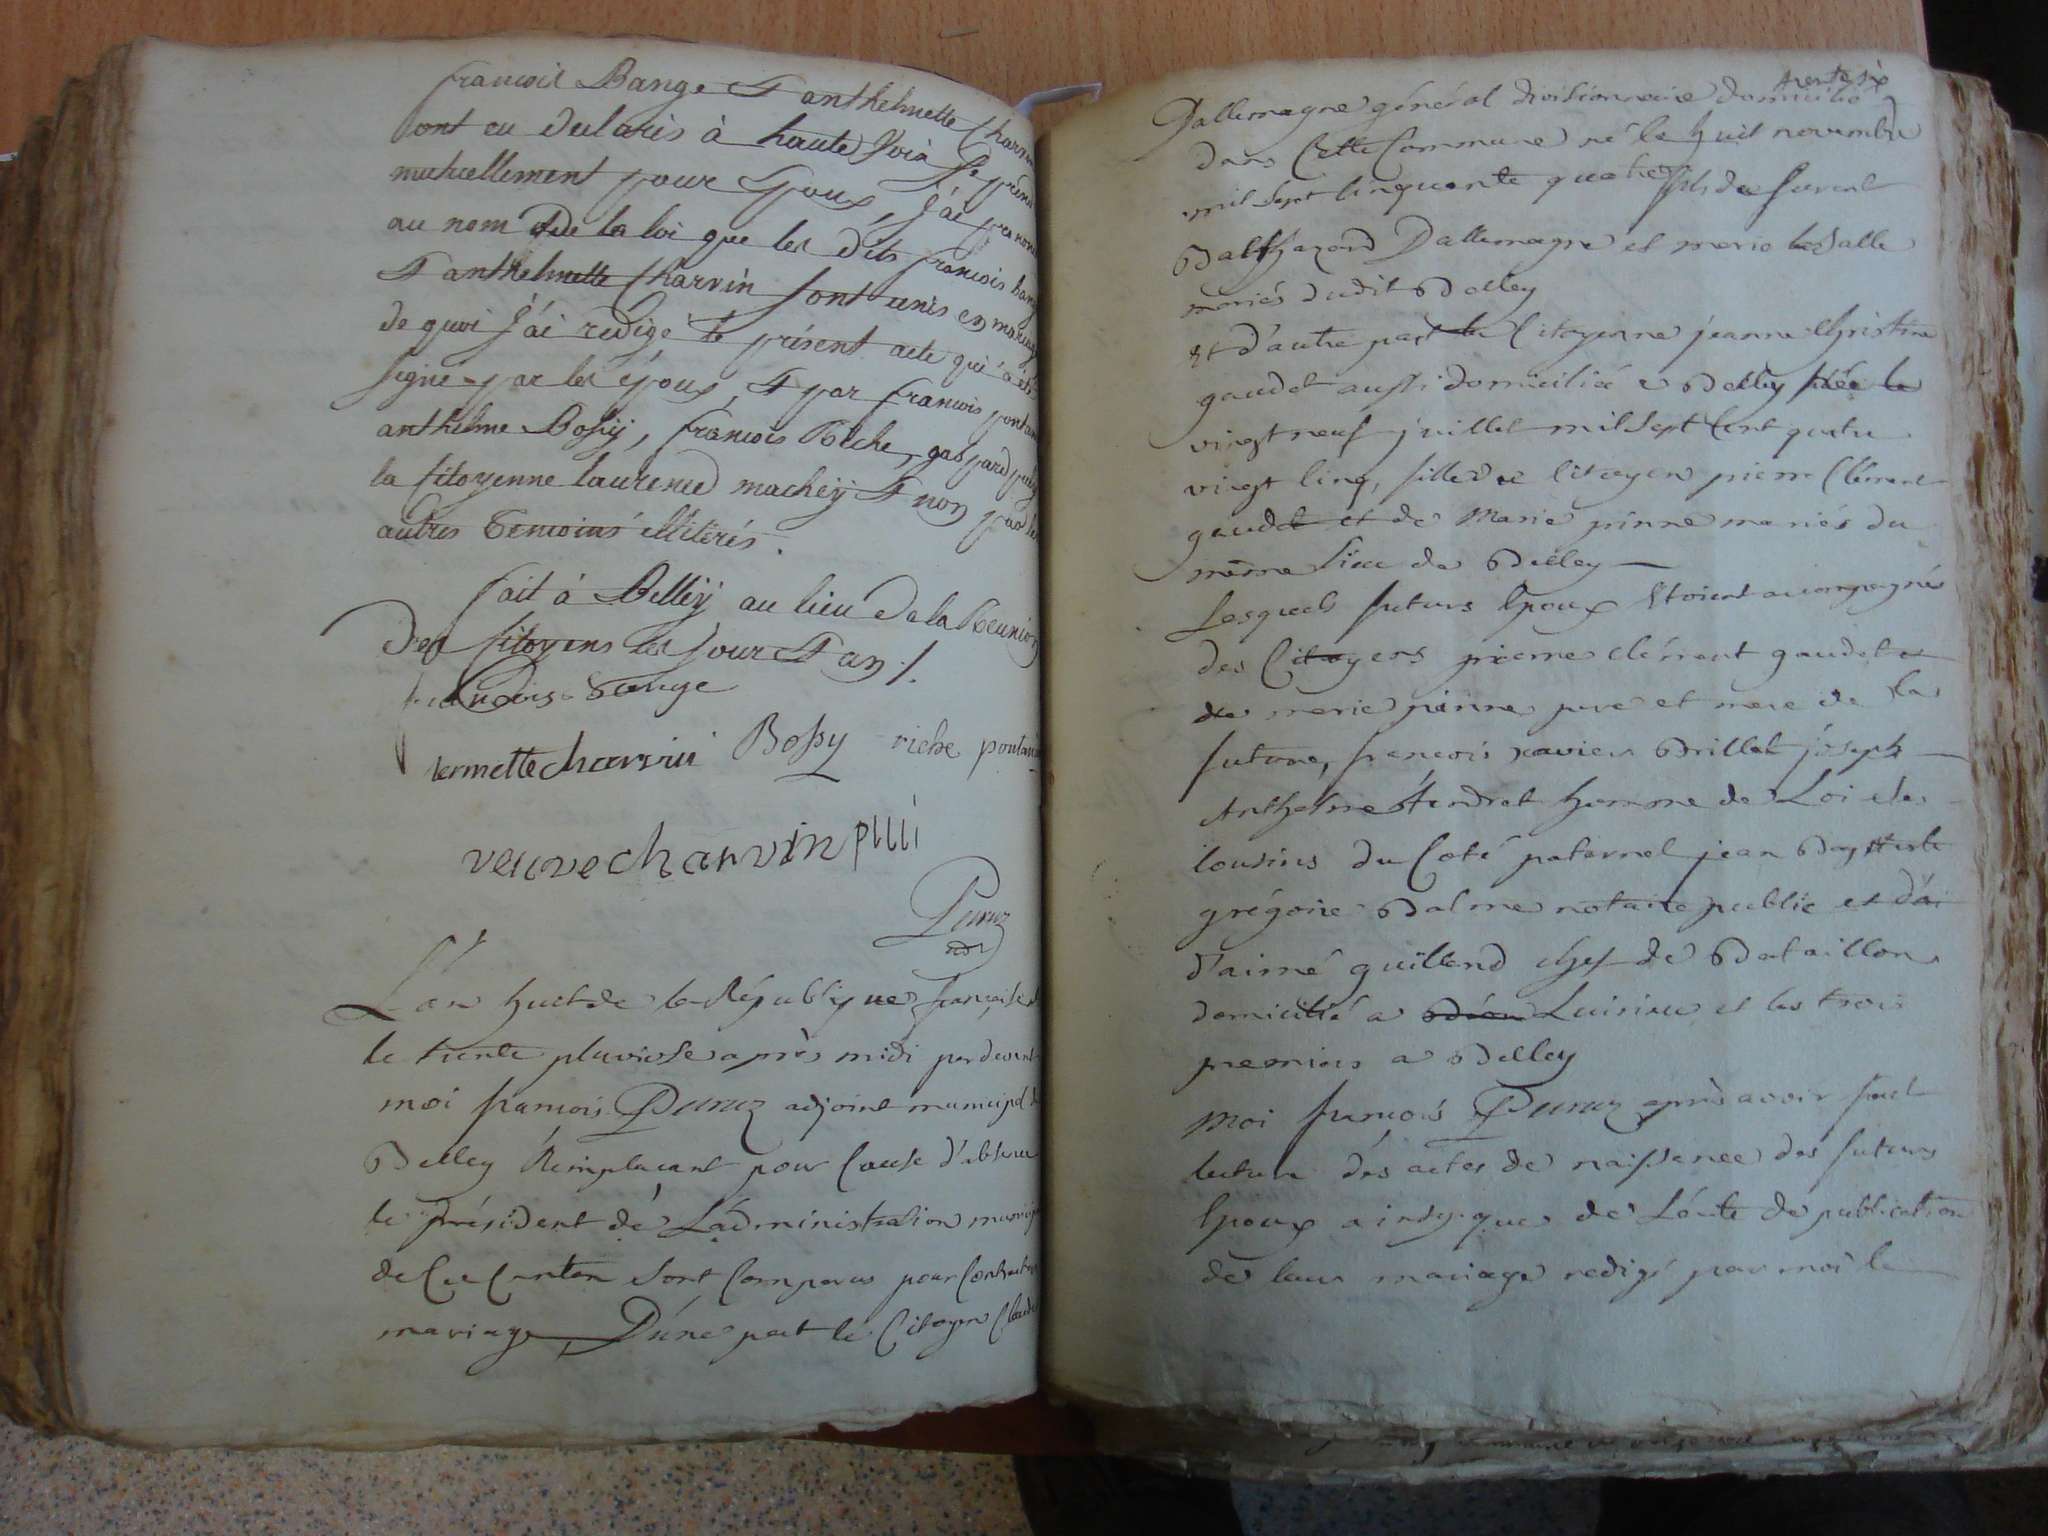 francois Bange & anthelmette Charvin
ont eu declarés à haute Voix Se prendre
mutuellement pour Epoux, J'ai prononcé
au nom de la loi que les dits francois bange
& anthelmette Charvin sont unis en mariage
de quoi j'ai redigé le présent acte qui a été
signé par les époux, & par francois pontanier
anthelme Bossy, francois Riche, gaspard
la Citoyenne laurence machey & non par les
autres temoins illiterés.
fait à Belley au lieu de la Reunion
des Citoyens les Jour & an ./.
francois Bange
termette charvin Bossy riche pontanier
veuve charvin
Peruz
adj
L'an huit de la République françoise et
le trente pluviose après midi par devant
moi francois Peruz adjoint municipal de
Belley Remplacant pour Cause d'absence
le président de L'administration municipale
de Ce Canton sont Comparus pour Contracter
mariage, D'une part le Citoyen Claude
trente six
Dallemagne général divisionnaire domicilié
dans Cette Commune né le huit novembre
mil sept Cinquante quatre fils de furent
Balthazard Dallemagne et marie lasalle
mariés dudit Belley
Et d'autre part la Citoyenne jeanne Christine
gaudet aussi domiciliée a Belley née le
vingt neuf juillet mil sept Cent quatre
vingt Cinq, fille de Citoyen pierre Clément
gaudet et de Marie pinne mariés du
même lieu de Belley
Lesquels futurs Epoux Etoient accompagnés
des Citoyens pierre clément gaudet et
de marie pinne pere et mere de la
future, francois xavier Brillat joseph
Anthelme tendret homme de Loi
Cousins du Coté paternel jean Baptiste
grégoire Balme notaire public et d'ai
d'aimé guilland chef de Bataillon
domicilié a Luisieu et les trois
premiers a Belley
Moi francois Peruz après avoir fait
lecture des actes de naissance des futurs
Epoux ainsy que de L'acte de publication
de leur mariage redigé par moi le